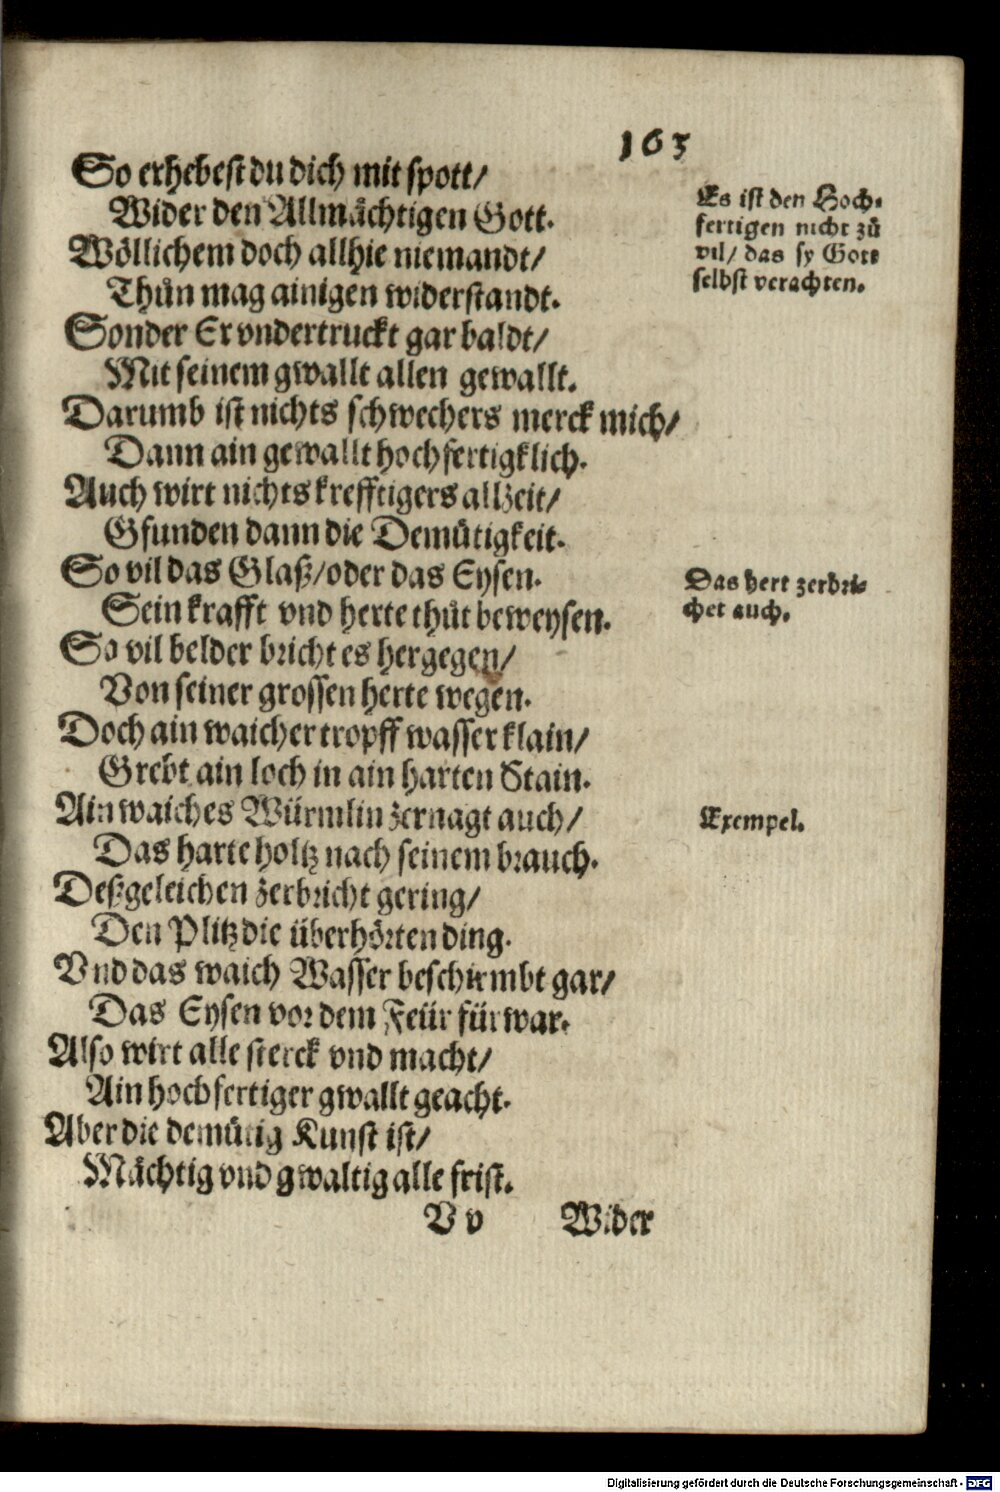 163
So erhebest du dich mit spott/
Wider den Allmächtigen Gott.
Wöllichem doch allhie niemandt/
Thůn mag ainigen widerstandt.
Sonder Er vndertruckt gar baldt/
Mit seinem gwallt allen gewallt.
Darumb ist nichts schwechers merck mich/
Dann ain gewallt hochfertigklich.
Auch wirt nichts krefftigers allzeit/
Gfunden dann die Demütigkeit.
So vil das Glaß/oder das Eysen.
Sein krafft vnd herte thůt beweysen.
So vil belder bricht es hergegen/
Von seiner grossen herte wegen.
Doch ain waicher tropff wasser klain/
Grebt ain loch in ain harten Stain.
Ain waiches Würmlin zernagt auch/
Das harte holtz nach seinem brauch.
Deßgeleichen zerbricht gering/
Den Plitz die überhörten ding.
Vnd das waich Wasser beschirmbt gar/
Das Eysen vor dem Feür fürwar.
Also wirt alle sterck vnd macht/
Ain hochfertiger gwallt geacht.
Aber die demütig Kunst ist/
Mächtig vnd gwaltig alle frist.
V v Wider
Es ist den Hoch-
fertigen nicht zů
vil/ das sy Gott
selbst verachten.
Das hert zerbri-
chet auch.
Exempel.
Digitalisierung gefördert durch die Deutsche Forschungsgemeinschaft - DFG